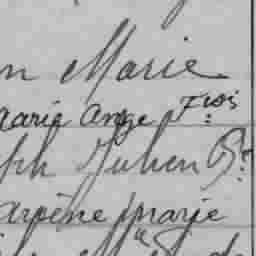 n Marie
Marie Ange Fcois
ph Julien Bte
arsène marie